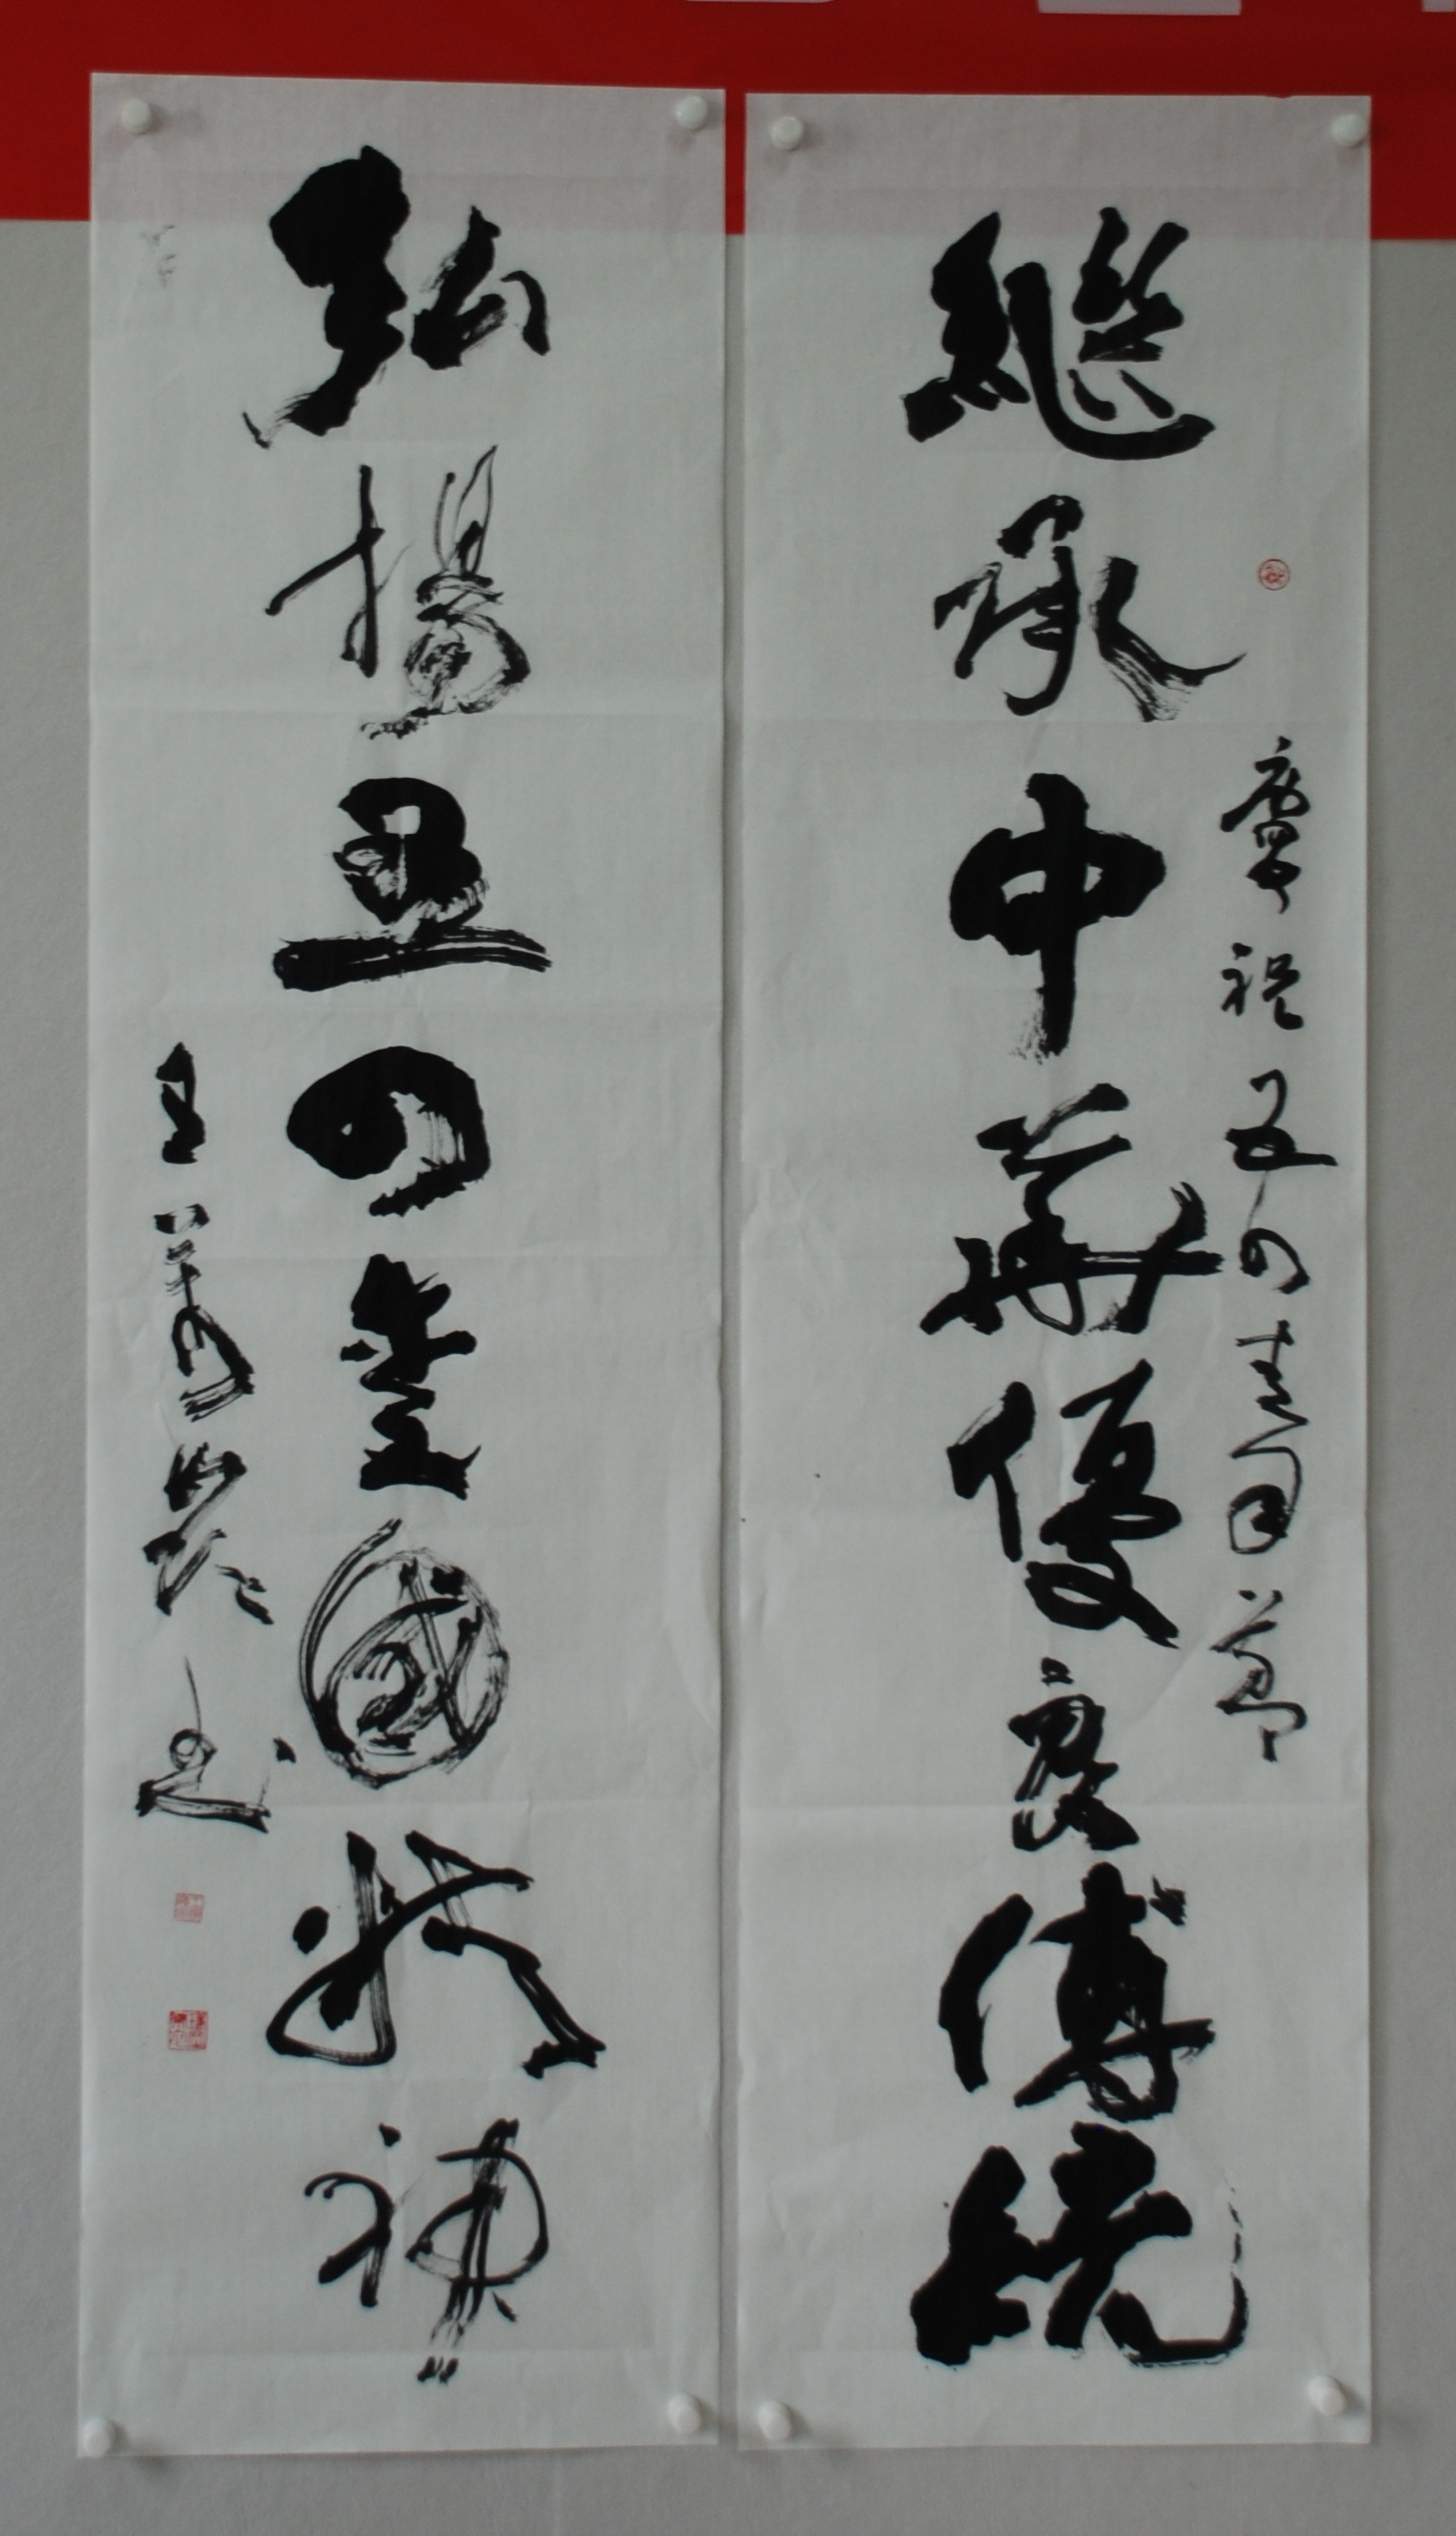 繼承中華優良傳統
慶祝五四青年節
弘揚五四愛國精神